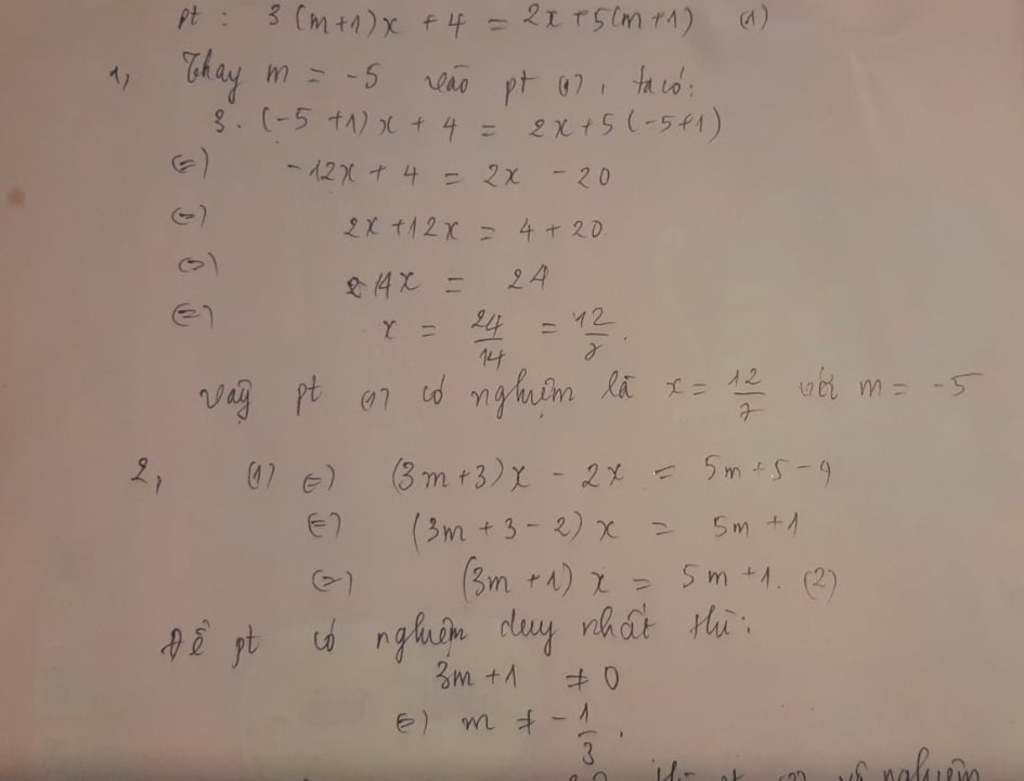 pt : 3 (m+1)x + 4 = 2x + 5(m+1) (1)
1, Thay m = -5 vào pt (1), ta có:
3. (-5 +1)x + 4 = 2x + 5 (-5+1)
(=) -12x + 4 = 2x - 20
(=) 2x + 12x = 4 + 20
(=) 14x = 24
(=) x = 24/14 = 12/7.
Vậy pt (1) có nghiệm là x = 12/7 với m = -5
2, (1) (=) (3m+3)x - 2x = 5m + 5 - 4
(=) (3m + 3 - 2) x = 5m + 1
(=) (3m + 1) x = 5m + 1. (2)
Để pt có nghiệm duy nhất thì:
3m + 1 ≠ 0
(=) m ≠ - 1/3.
thì pt (1) vô nghiệm